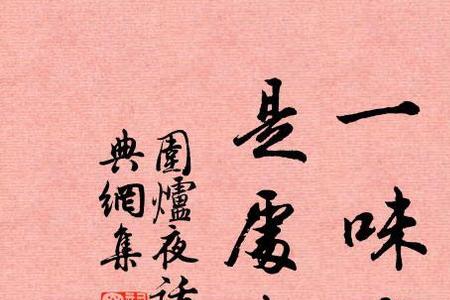 一味
是處
圍爐夜話
典網集